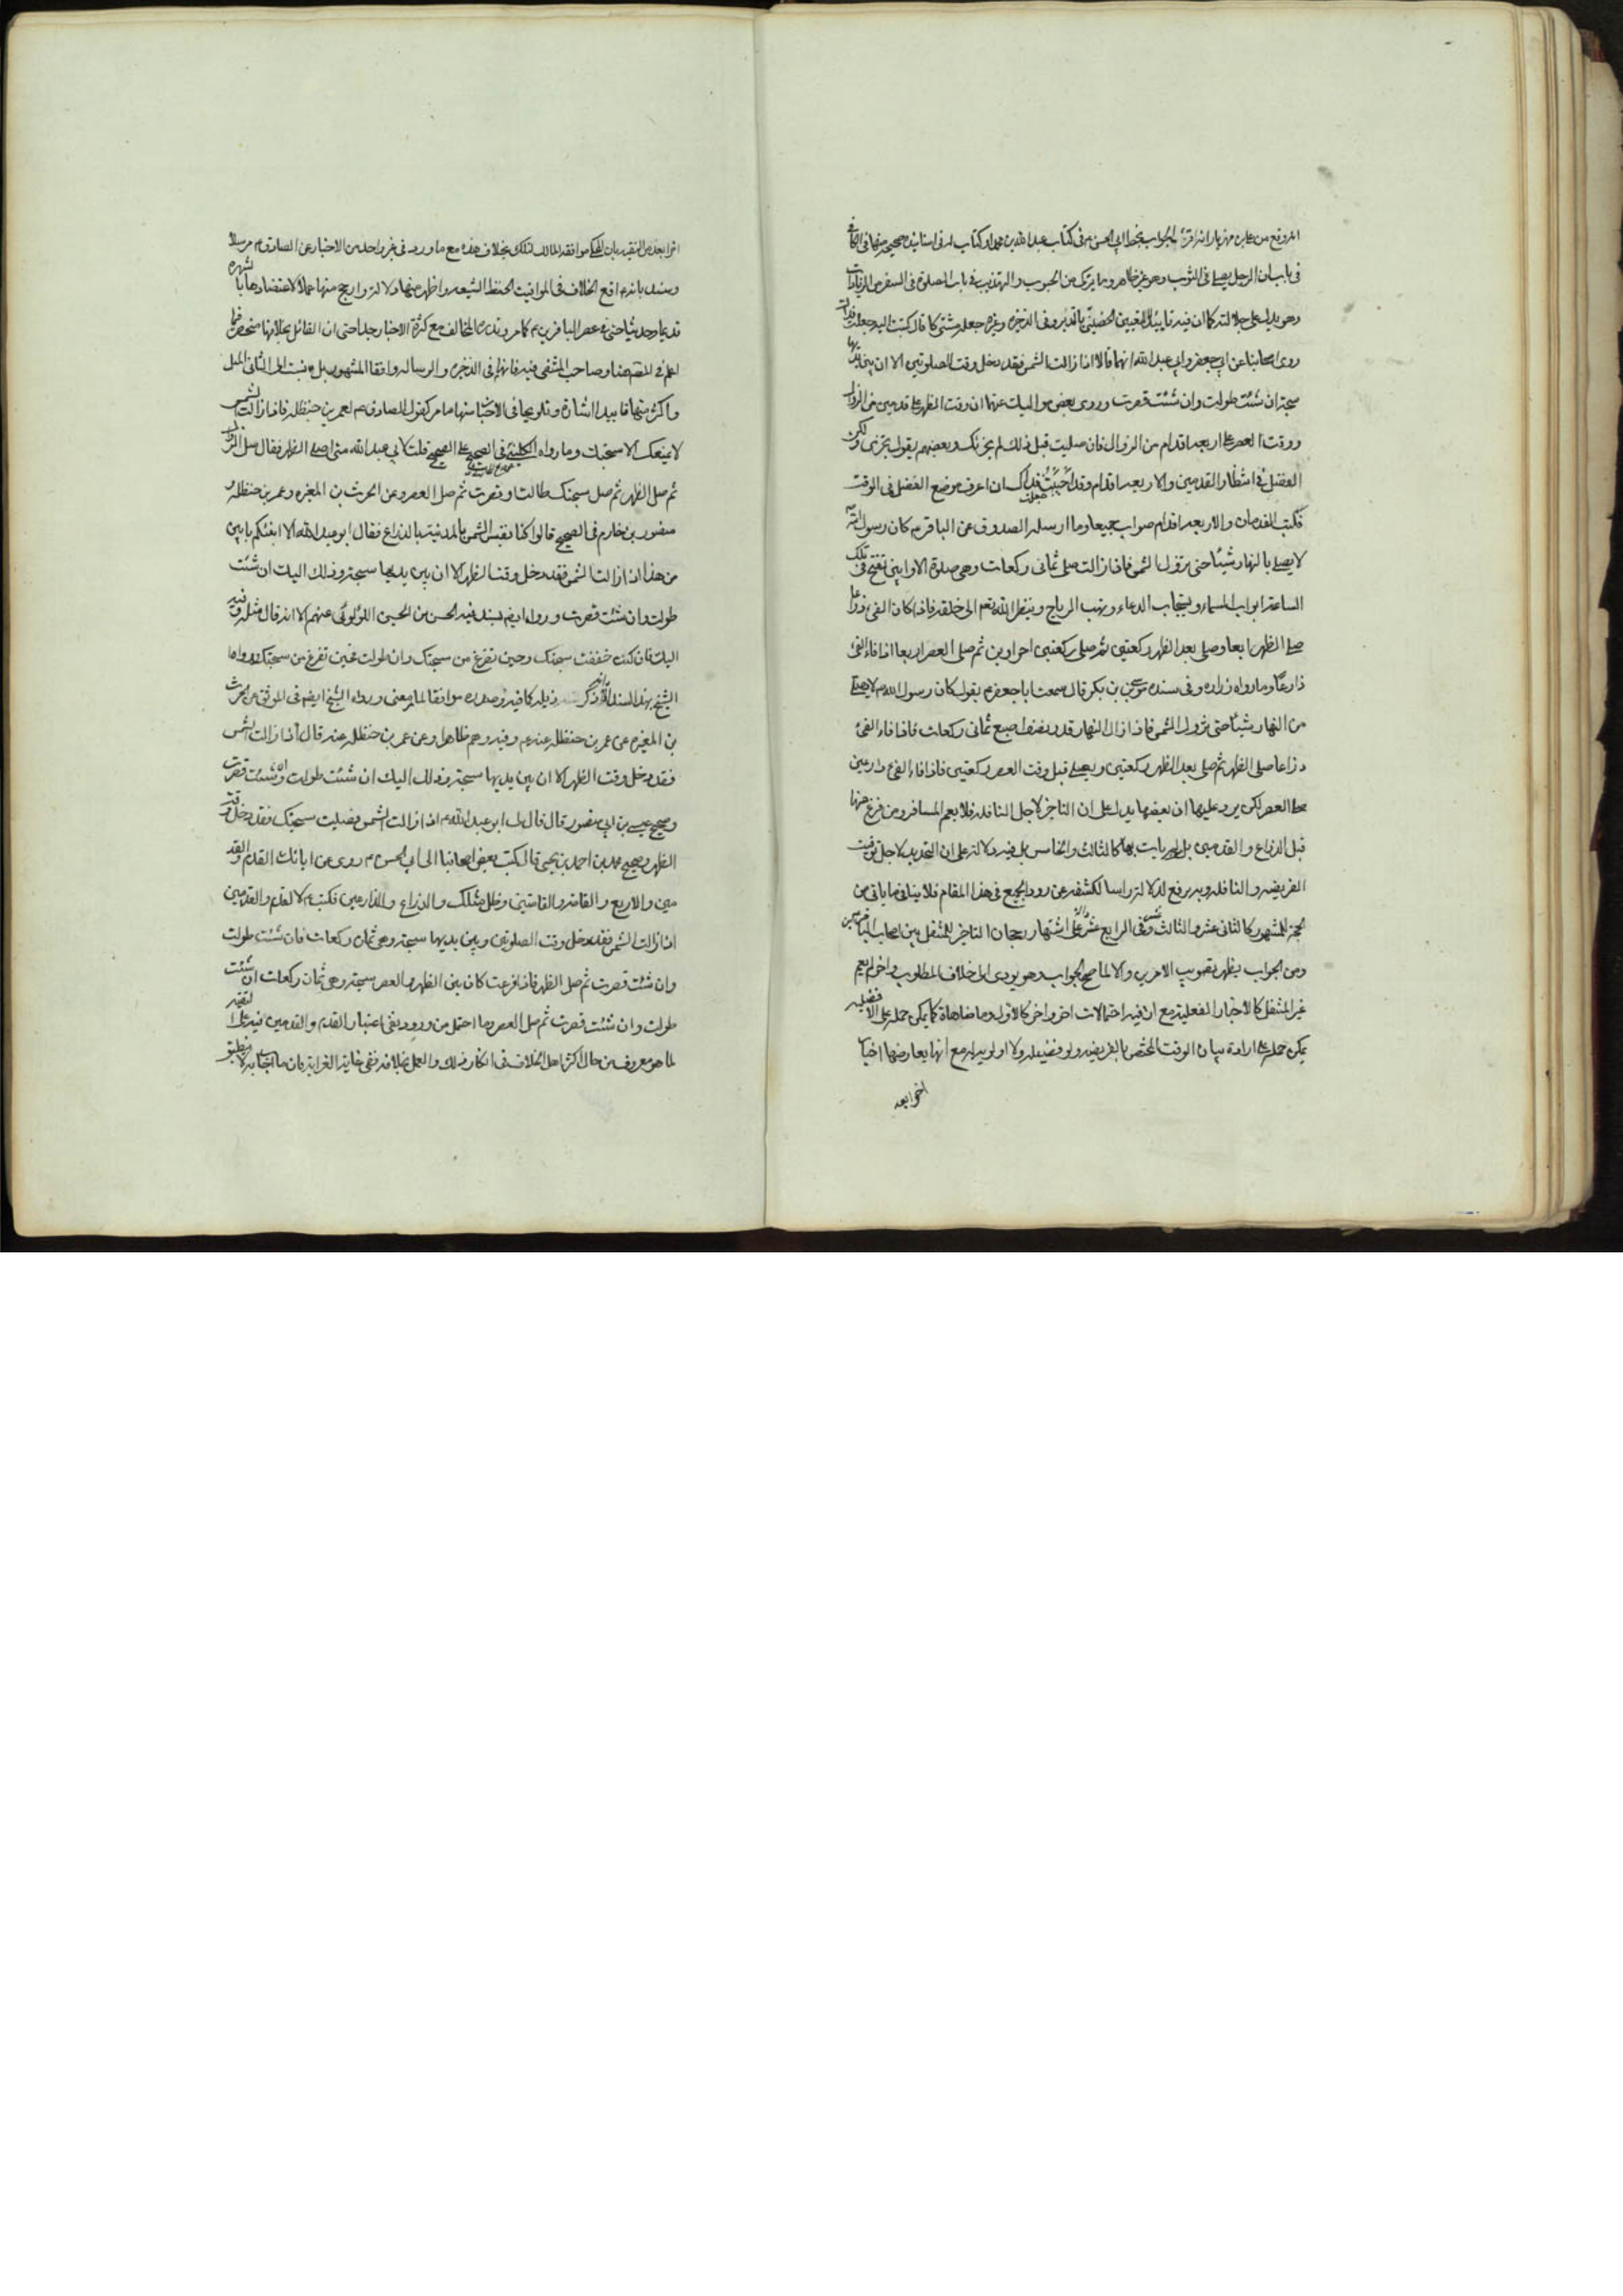 انه وقع من علي بن مهزيار انه قرء الجواب بخط ابي الحسن م في كتاب عبد الله بن محمد او كتاب له في اسانيد صحيحة منها في الكافي
في باب ان الرجل يصلي في الثوب وهو غير طاهر وما يزكى من الحبوب والتهذيب في باب الصلوة في السفر من الزيادات
وهو يدل على جلالته كما ان فيه تاييدا وفي الذخيره وغيره جعله مشتى كا قال كتبت اليه جعلت فداك
روى اصحابنا عن ابي جعفر وابي عبد الله انهما قالا اذا زالت الشمس فقد دخل وقت الصلوتين الا ان بين يديها
سبحة ان شئت طولت وان شئت قصرت وروى بعض مواليك عنهما ان وقت الظهر على قدمين من الزوال
ووقت العصر على اربعة اقدام من الزوال فان صليت قبل ذلك لم يجزئك وبعضهم يقول يجزي ولكن
الفضل في انتظار القدمين والاربعة اقدام وقد احببت جعلت فداك ان اعرف موضع الفضل في الوقت
فكتب القدمان والاربعة اقدام صواب جميعا وما ارسله الصدوق عن الباقر م كان رسول الله
لا يصلي بالنهار شيئا حتى تزول الشمس فاذا زالت صلى ثماني ركعات وهي صلوة الاوابين تفتح في تلك
الساعة ابواب السماء ويستجاب الدعاء وتهب الرياح وينظر الله تعم الى خلقه فاذا كان الفئ ذراعا
صلى الظهر اربعا وصلى بعد الظهر ركعتين ثم صلى ركعتين اخراوين ثم صلى العصر اربعا اذا فاء الفئ
ذراعا وما رواه زراره وفي سنده موسى بن بكر قال سمعت ابا جعفر م يقول كان رسول الله م لا يصلي
من النهار شيئا حتى تزول الشمس فاذا زال النهار قدر نصف اصبع صلى ثماني ركعات فاذا فاء الفئ
ذراعا صلى الظهر ثم صلى بعد الظهر ركعتين ويصلي قبل وقت العصر ركعتين فاذا فاء الفئ ذراعين
صلى العصر لكن يرد عليها ان بعضها يدل على ان التاخر لاجل النافلة فلا يعم المسافر ومن فرغ منها
قبل الذراع والقدمين بل كالثالث والخامس بل فيه دلالة على ان التحديد لاجل توقيت
الفريضة والنافلة وبه يرفع الدلالة راسا لكشفه عن رود الجميع في هذا المقام فلا ينافي ما ياتي من
الحجة للمشهور كالثاني عشر والثالث عشر وفي الرابع عشر دلالة على اشتهار رجحان التاخر للمتنفل بين اصحاب الباقرين
ومن الجواب يظهر تصويب الامرين والا لما صح الجواب وهو يؤدي الى خلاف المطلوب واخر لم يعم
غير المتنفل كالاخبار الفعلية مع ان فيه احتمالات اخر واخر كالاول وما ضاهاه كما يمكن حمله على الافضلية
يمكن حمله على ارادة بيان الوقت المختص بالفريضة ولو فضيلة ولا اولوية مع انها يعارضها اخبار
اخر ابعد
اخر ابعد من التقية بان الحكم موافقة المالك لذلك بخلاف هذه مع ما ورد في غير واحد من الاخبار عن الصادق م مرسلا
ومسندا بانه م اوقع الخلاف في المواقيت لحفظ الشيعة واظهر منها دلالة وارجح منها عملا لاعتضادها بالشهرة
قديما وحديثا حتى في عصر الباقرين م كما مر وندرة المخالف مع كثرة الاخبار جدا حتى ان القائل بخلافها منحصر في ما
اعلم في المقتضا وصاحب المنتقى فيه فانهما في الذخيره والرساله وافقا المشهور بل نسب الى الثاني الميل
واكثر منها تاييدا اشارة وتلويحا في الاخبار منها ما مر كقول الصادق م لعمر بن حنظله فاذا زالت الشمس
لا يمنعك الا سبحتك وما رواه الكليني في الصحيح على الصحيح قلت لابي عبد الله متى اصلي الظهر فقال صل الزوال
ثم صل الظهر ثم صل سبحتك طالت او قصرت ثم صل العصر وعن الحرث بن المغيره وعمر بن حنظله و
منصور بن حازم في الصحيح قالوا كنا نقيس الشمس بالمدينة بالذراع فقال ابو عبد الله الا انبئكم بابين
من هذا اذا زالت الشمس فقد دخل وقت الظهر الا ان بين يديها سبحة وذلك اليك ان شئت
طولت وان شئت قصرت ورواه ايضم بسند فيه الحسن بن الحسين اللؤلوئي عنهم الا انه قال مثله وفيه
اليك فان كنت خففت سبحتك وحين تفرغ من سبحتك وان طولت فحين تفرغ من سبحتك ورواها
الشيخ بهذا السند ذيله كما فيه وصدره موافقا لما مر معنى ورواه الشيخ ايضم في الموثق عن حرث
بن المغيره عن عمر بن حنظله عنه م وفيه وهم ظاهر وعن عمر بن حنظله عنه قال اذا زالت الشمس
فقد دخل وقت الظهر الا ان بين يديها سبحة وذلك اليك ان شئت طولت وان شئت قصرت
وصحيح عيسى بن ابي منصور قال قال لي ابو عبد الله م اذا زالت الشمس فصليت سبحتك فقد دخل وقت
الظهر وصحيح محمد بن احمد بن يحيى قال كتب بعض اصحابنا الى ابي الحسن م روى عن ابائك القدم والقد
مين والاربع والقامة والقامتين وظل مثلك والذراع والذراعين فكتب م لا القدم والقدمين
اذا زالت الشمس فقد دخل وقت الصلوتين وبين يديها سبحة وهي ثمان ركعات فان شئت طولت
وان شئت قصرت ثم صل الظهر فاذا فرغت كان بين الظهر والعصر سبحة وهي ثمان ركعات ان شئت
طولت وان شئت قصرت ثم صل العصر وما احتمل من ورود نفي اعتبار القدم والقدمين فيه على التقية
لما هو معروف من حال اكثر اهل الخلاف في انكار ذلك والعمل بخلافه ففي غاية الغرابة فان ما اجاب به لا ينطبق